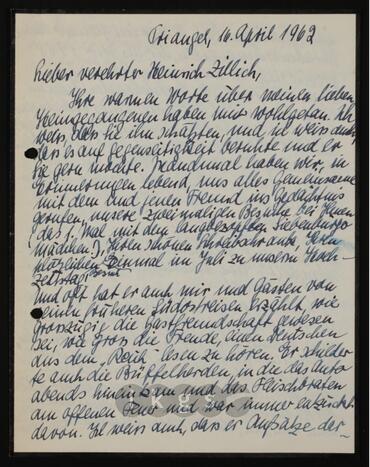 Triangel, 16. April 1962
Lieber verehrter Heinrich Zillich,
Ihre warmen Worte über meinen lieben
Heimgegangenen haben mir wohlgetan. Ich
weiss, dass Sie ihn schätzten, und ich weiss auch,
dass es auf Gegenseitigkeit beruhte und er
Sie gern mochte. Manchmal haben wir, in
Erinnerungen lebend, uns alles Gemeinsame
mit dem und jenem Freund ins Gedächtnis
gerufen, unsere zweimaligen Besuche bei Ihnen
(das 1. Mal mit dem langbezopften Siebenbürger
mädchen!), Ihren schönen
plötzlichen Einmal im Juli zu unserm Hoch-
zeitstag
Und oft hat er auch mir und Gästen von
seinen früheren Südostreisen erzählt, wie
grosszügig die Gastfreundschaft gewesen
sei, wie gross die Freude, einen Deutschen
aus dem „Reich" lesen zu hören. Er schilder
te auch die Büffelherden, in die das Auto
abends hineinkam und das Fleischbraten
am offenen Feuer und war immer entzückt
davon. Ich weiss auch, dass er Aufsätze der-
kgs